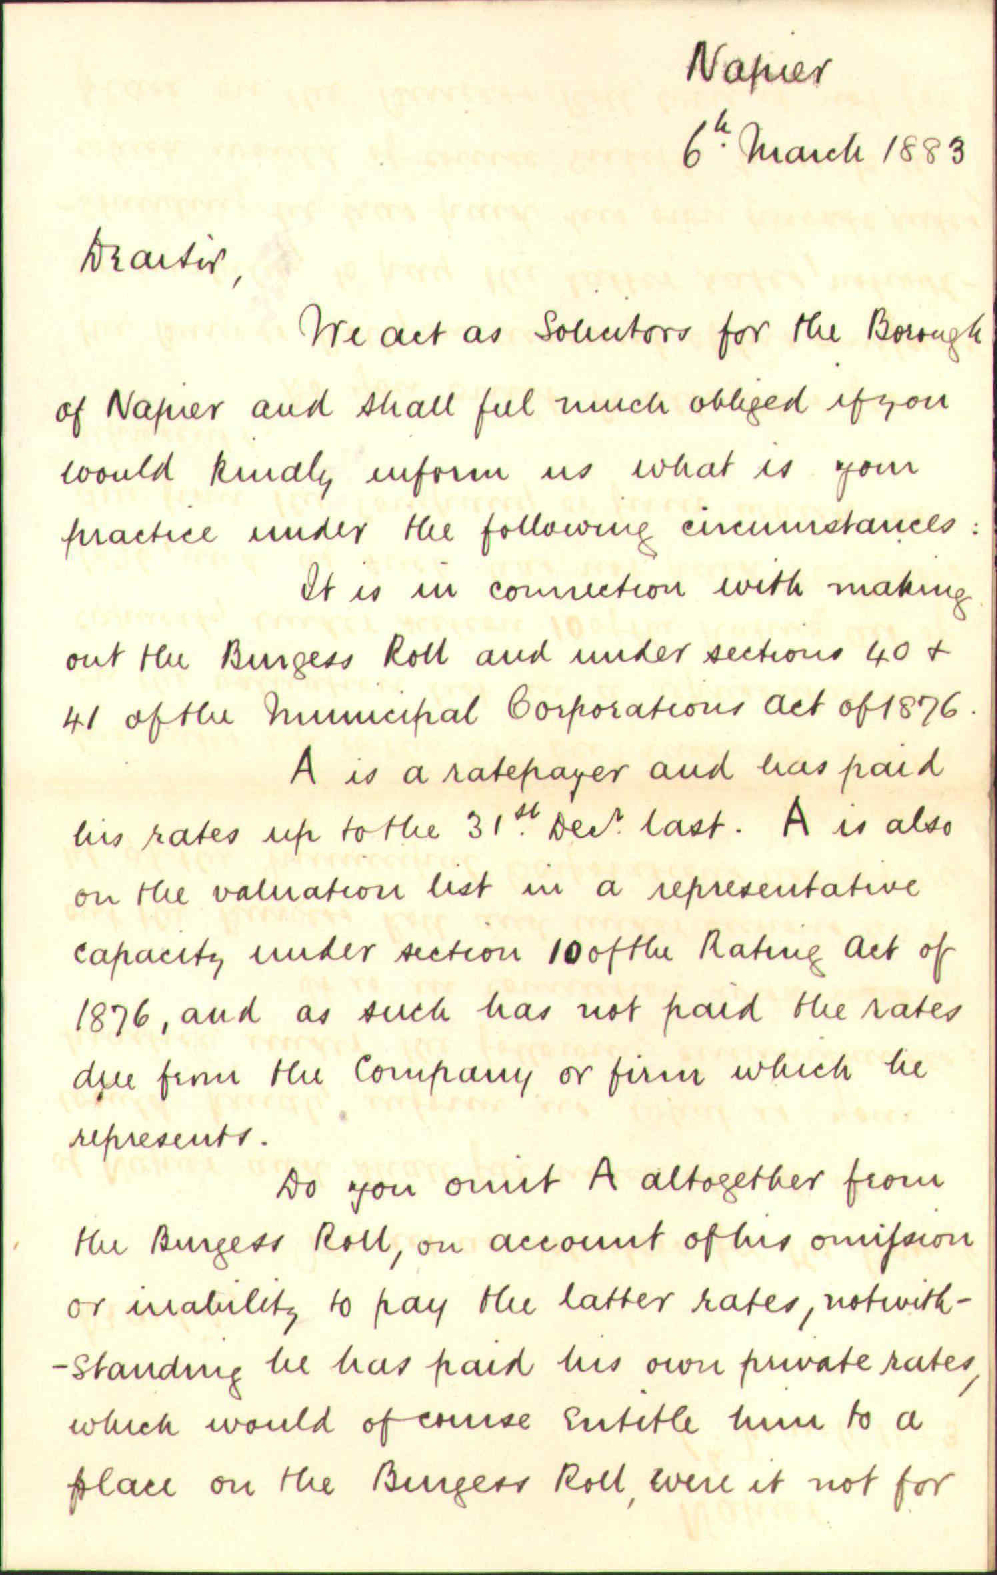 Napier
6th. March 1883
Dear Sir,
We act as Solicitors for the Borough
of Napier and shall feel much obliged if you
would kindly inform us what is your
practice under the following circumstances:
It is in connection with making
out the Burgess Roll and under sections 40 &
41 of the Municipal Corporations Act of 1876.
A is a ratepayer and has paid
his rates up to the 31st. Decr. last. A is also
on the valuation list in a representative
capacity under section 10 of the Rating Act of
1876, and as such has not paid the rates
due from the Company or firm which he
represents.
Do you omit A altogether from
the Burgess Roll, on account of his omission
or inability to pay the latter rates, notwith-
-standing he has paid his own private rates,
which would of course entitle him to a
place on the Burgess Roll, were it not for